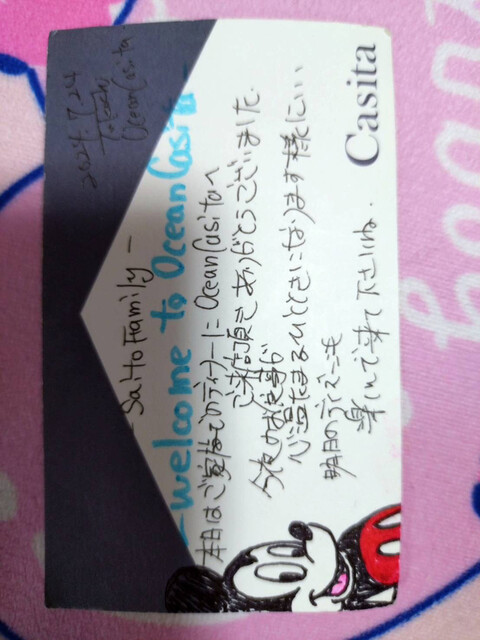 Casita
- Saito Family -
- Welcome to Ocean Casita -
本日はご家族でのディナーに Ocean Casitaへ
ご来店頂きありがとうございました。
今夜のお食事が
心温まるひとときになります様に…
明日のディズニーも
楽しんで来て下さいね。
2024.7.24
Ocean Casita